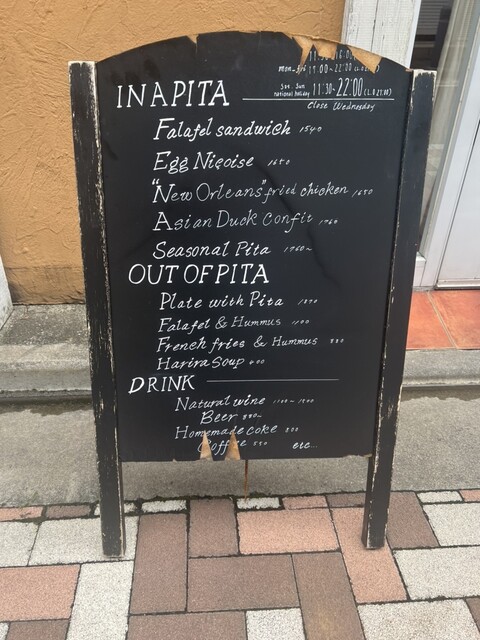 11:30 16:0
mon-Fri 17:00~22:00 (L.O 21:00)
Sat. Sun
national holiday 11:30-22:00 (L.O 21:00)
Close Wednesday
IN A PITA
Falafel sandwich 1540
Egg Niçoise 1650
"New Orleans" fried chicken 1650
Asian Duck Confit 1760
Seasonal Pita 1760~
OUT OF PITA
Plate with Pita
Falafel & Hummus 1100
French fries & Hummus 880
Harira Soup
DRINK
Natural wine
Beer 880~
Homemade coke
Coffee 550 etc...